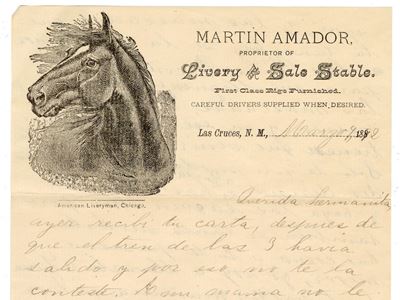 MARTIN AMADOR,
PROPRIETOR OF
Livery and Sale Stable.
First Class Rigs Furnished.
CAREFUL DRIVERS SUPPLIED WHEN DESIRED.
Las Cruces, N. M., Marzo 9, 188
American Liveryman, Chicago.
Querida hermanita,
ayer recibí tu carta, despues de
que el tren de las 3 havia
salido y por eso no te la
conteste. A mi mama no le